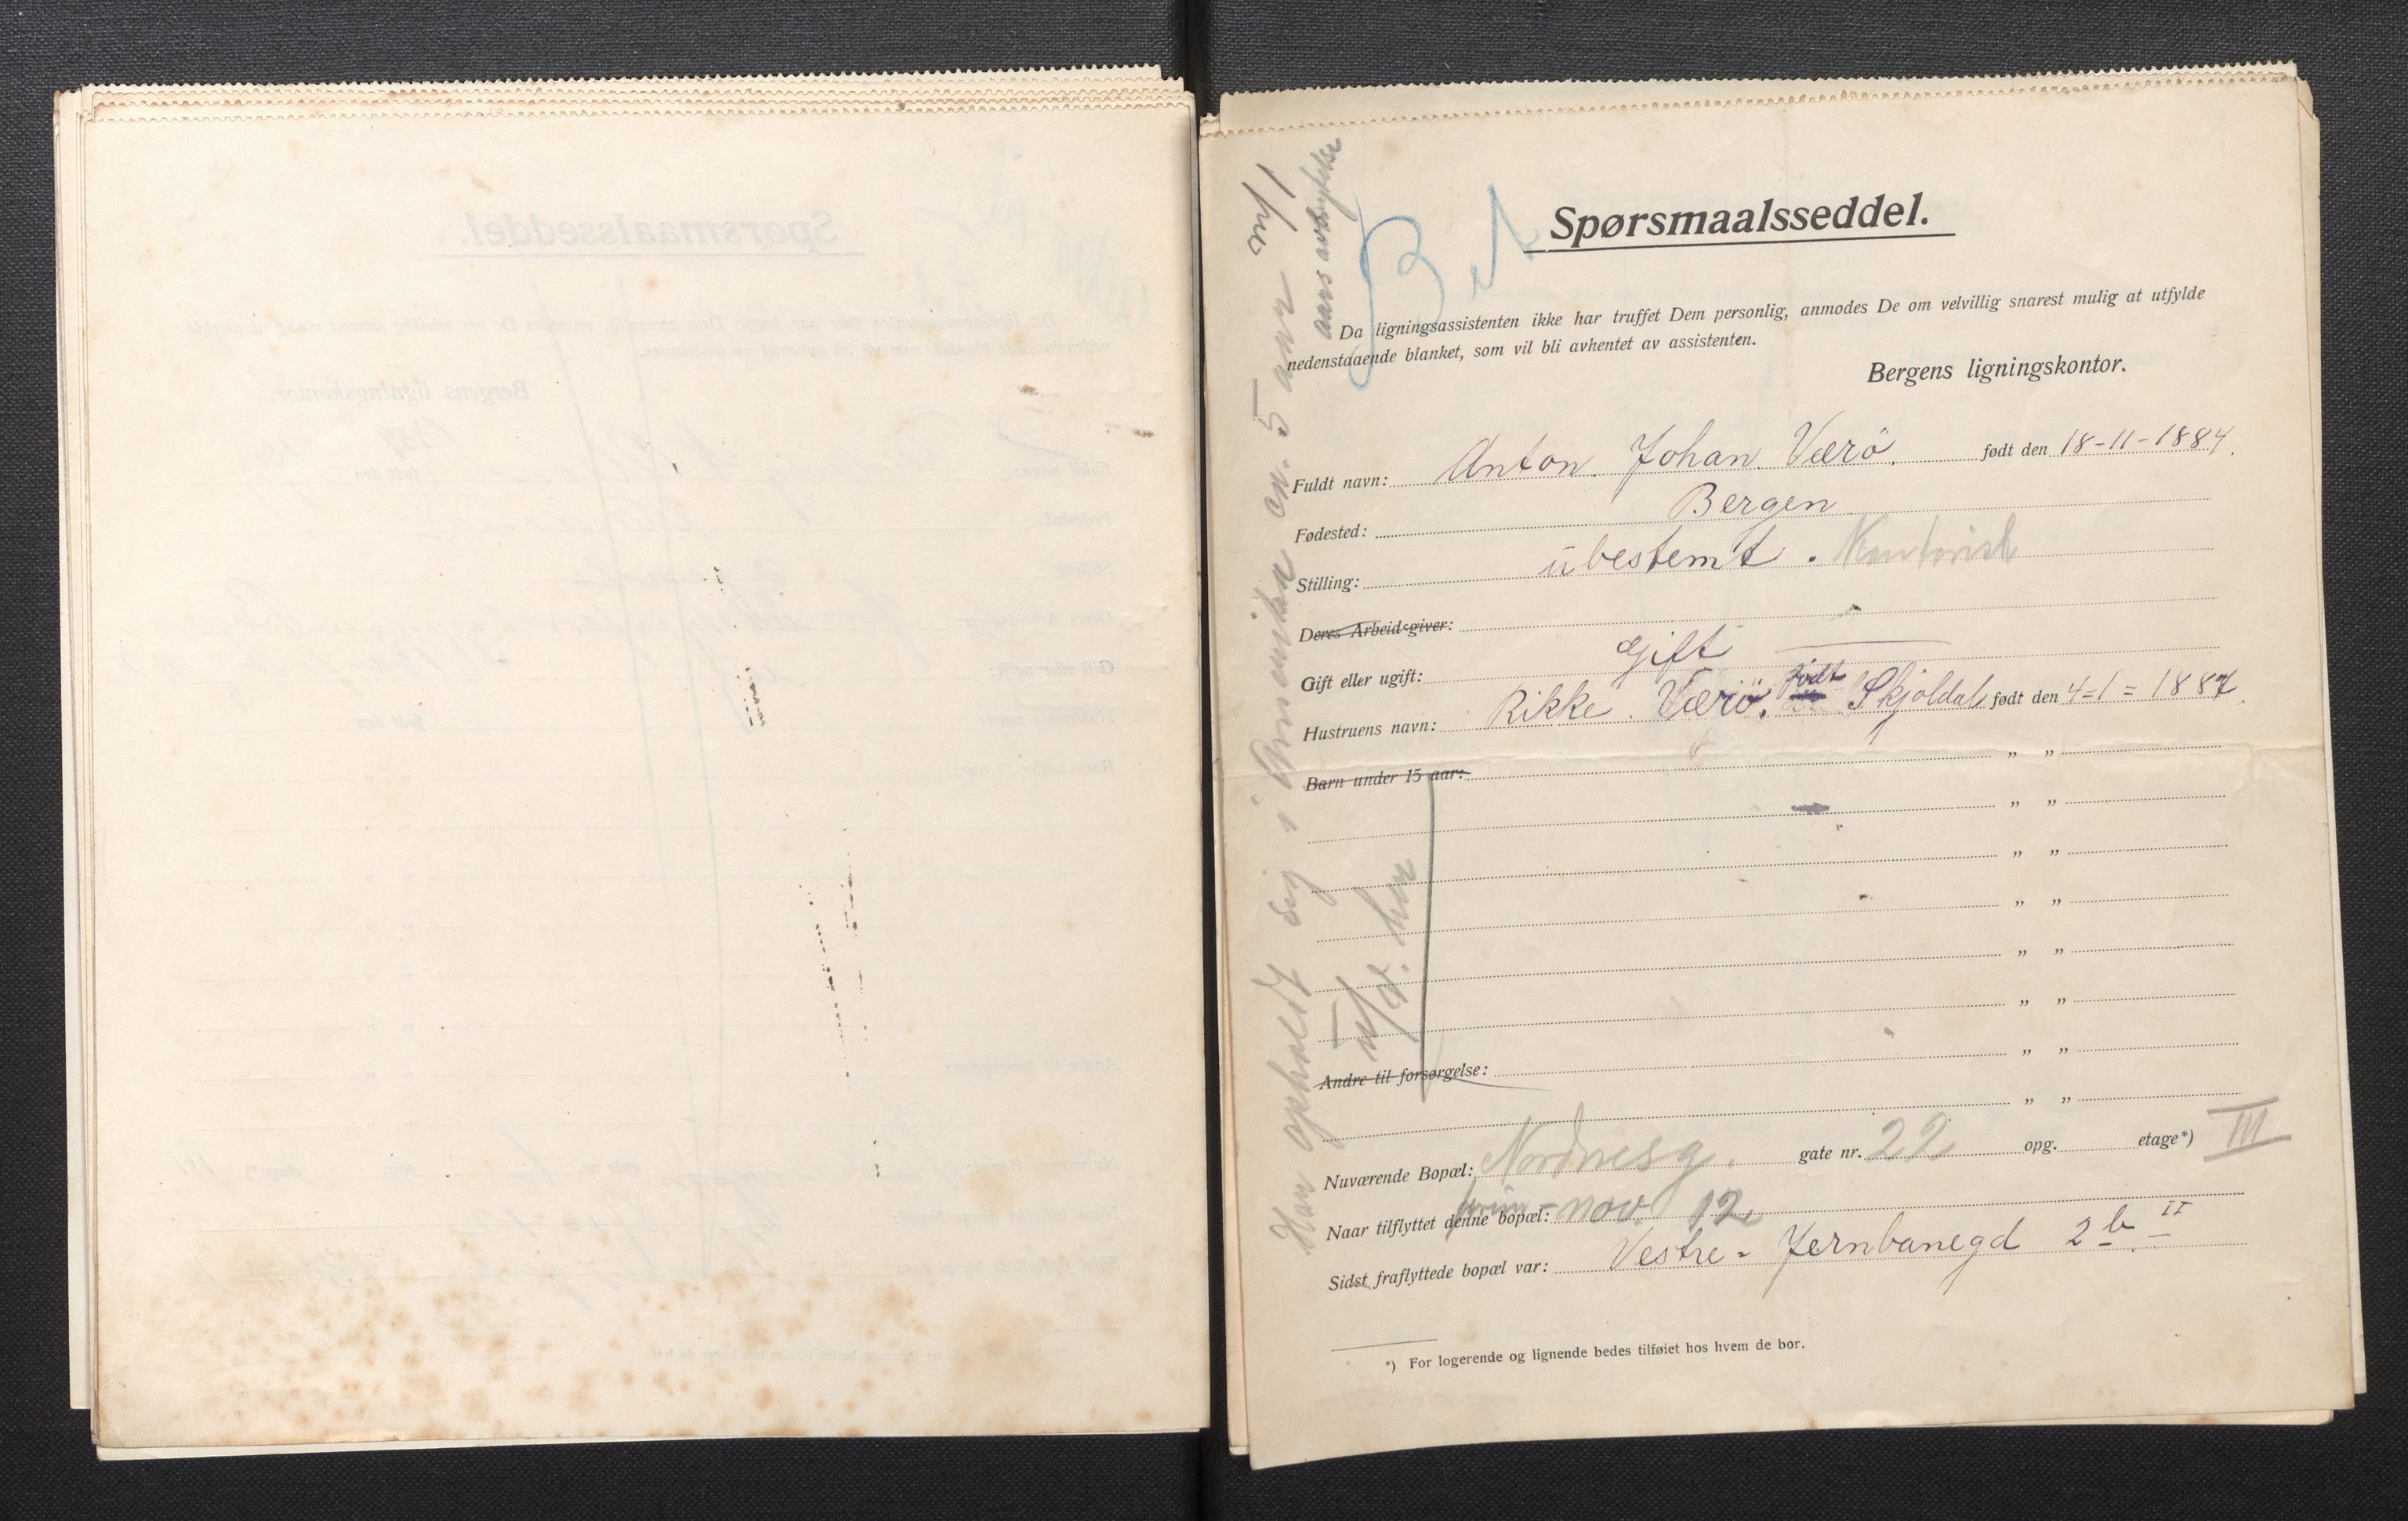 Spørsmaalsseddel.
Da ligningsassistenten ikke har truffet Dem personlig, anmodes De om velvillig snarest mulig at utfylde
nedenstaaende blanket, som vil bli avhentet av assistenten.
Bergens ligningskontor.
Fuldt navn: Anton Johan Værö. født den 18-11-1884.
Fødested: Bergen
Stilling: ubestemt. Kontorist
Deres Arbeidsgiver:
Gift eller ugift: Gift
Hustruens navn: Rikke Værö. født Skjoldal født den 4=1=1887.
Barn under 15 aar: „ „
„ „
„ „
„ „
„ „
„ „
Andre til forsørgelse: „ „
„ „
Nuværende Bopæl: Nordnesg. gate nr. 22 opg. etage*) III
Naar tilflyttet denne bopæl: nov. 12
Sidst fraflyttede bopæl var: Vestre- Jernbanegd 2 b II
*) For logerende og lignende bedes tilføiet hos hvem de bor.
Han opholdt sig i Amerika ca. 5 aar
u/d. har